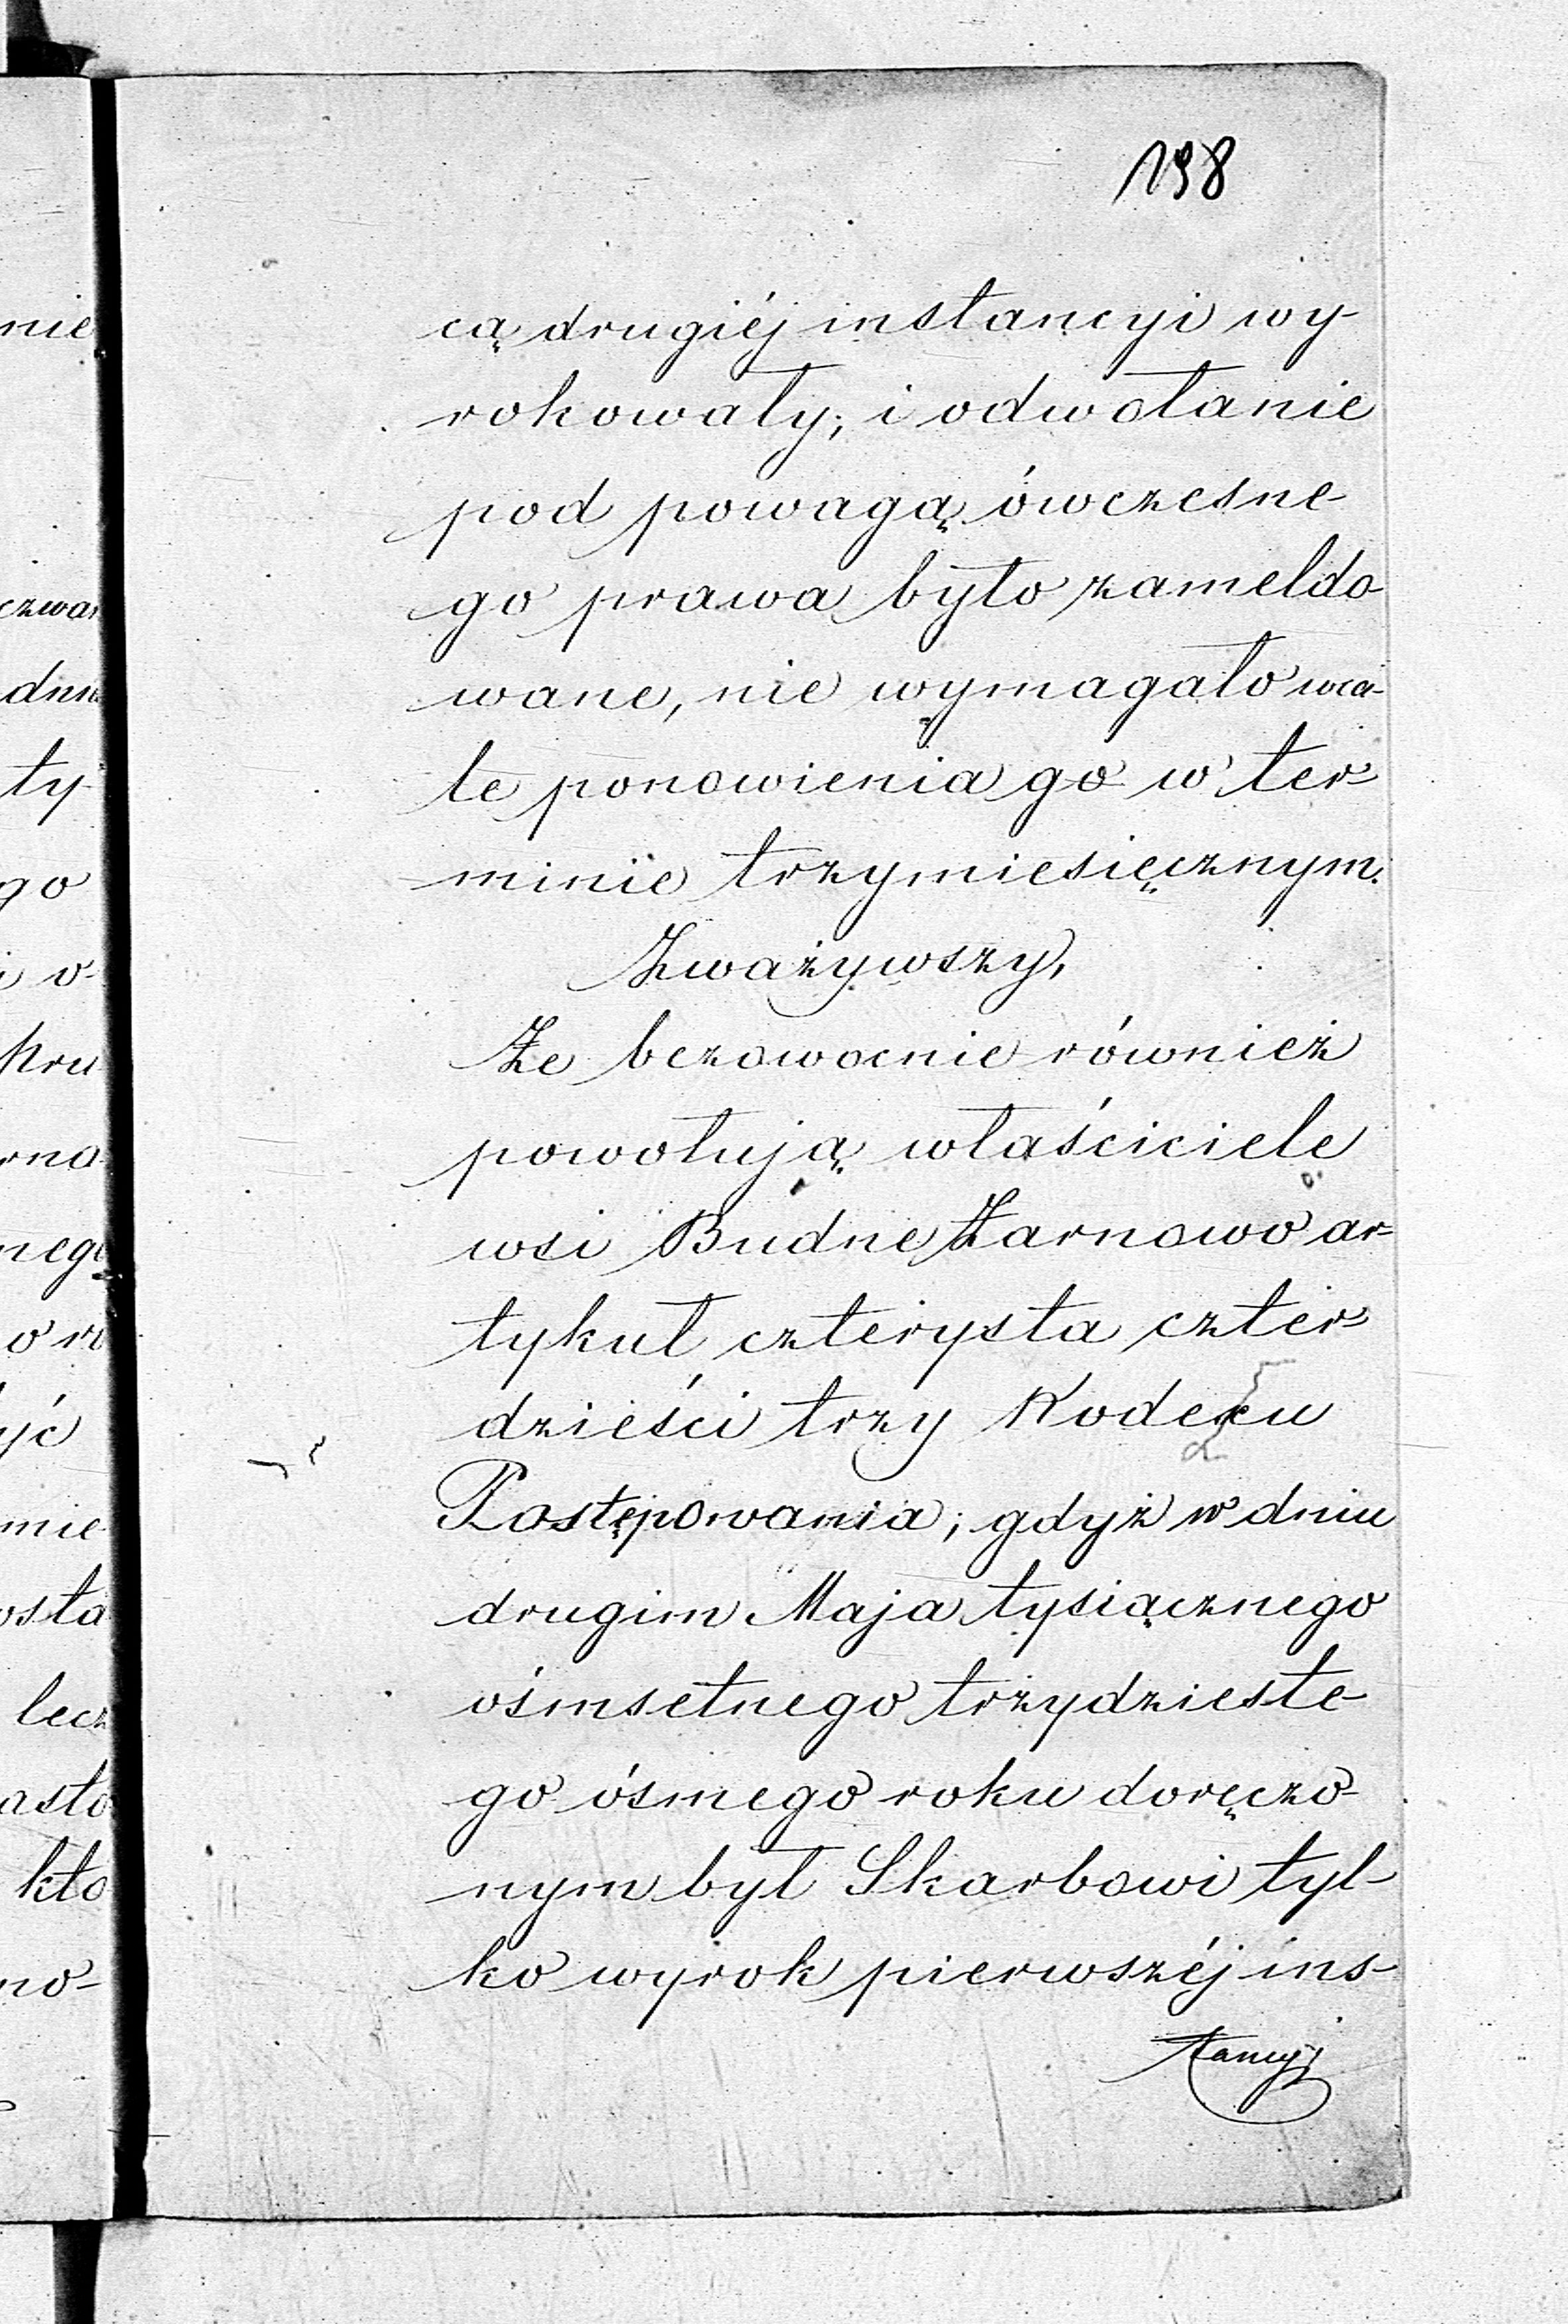 198
cą drugiéj instancyi wy-
rokowały; i odwołanie
pod powagą ówczesne-
go prawa było zameldo-
wane, nie wymagało wca-
le ponowienia go w ter-
minie trzymiesięcznym.
Zważywszy,
Że bezowocnie również
powołują właściciele
wsi Budne Żarnowo ar-
tykuł czterysta czter-
dzieści trzy Kodexu
Postępowania; gdyż w dniu
drugim Maja tysiącznego
ośmsetnego trzydzieste-
go ósmego roku doręczo-
nym był Skarbowi tyl-
ko wyrok pierwszéj ins-
tancyi
nie
czwar
dnu
ty-
go
i o-
Kru
rna
nego
o ro
yć
mie
osta
lecz
asto
kto
no-